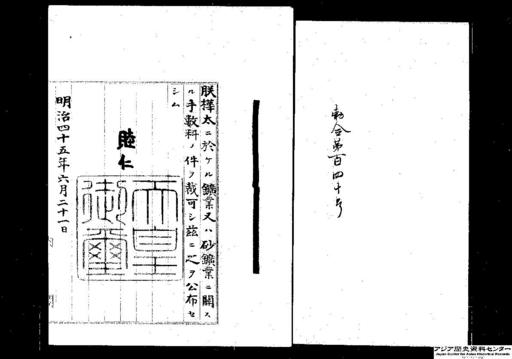 勅令第百四十号
朕樺太ニ於ケル鑛業又ハ砂鑛業ニ關ス
ル手數料ノ件ヲ裁可シ玆ニ之ヲ公布セ
シム
睦仁
天皇御璽
明治四十五年六月二十一日
アジア歴史資料センター
Japan Center for Asian Historical Records